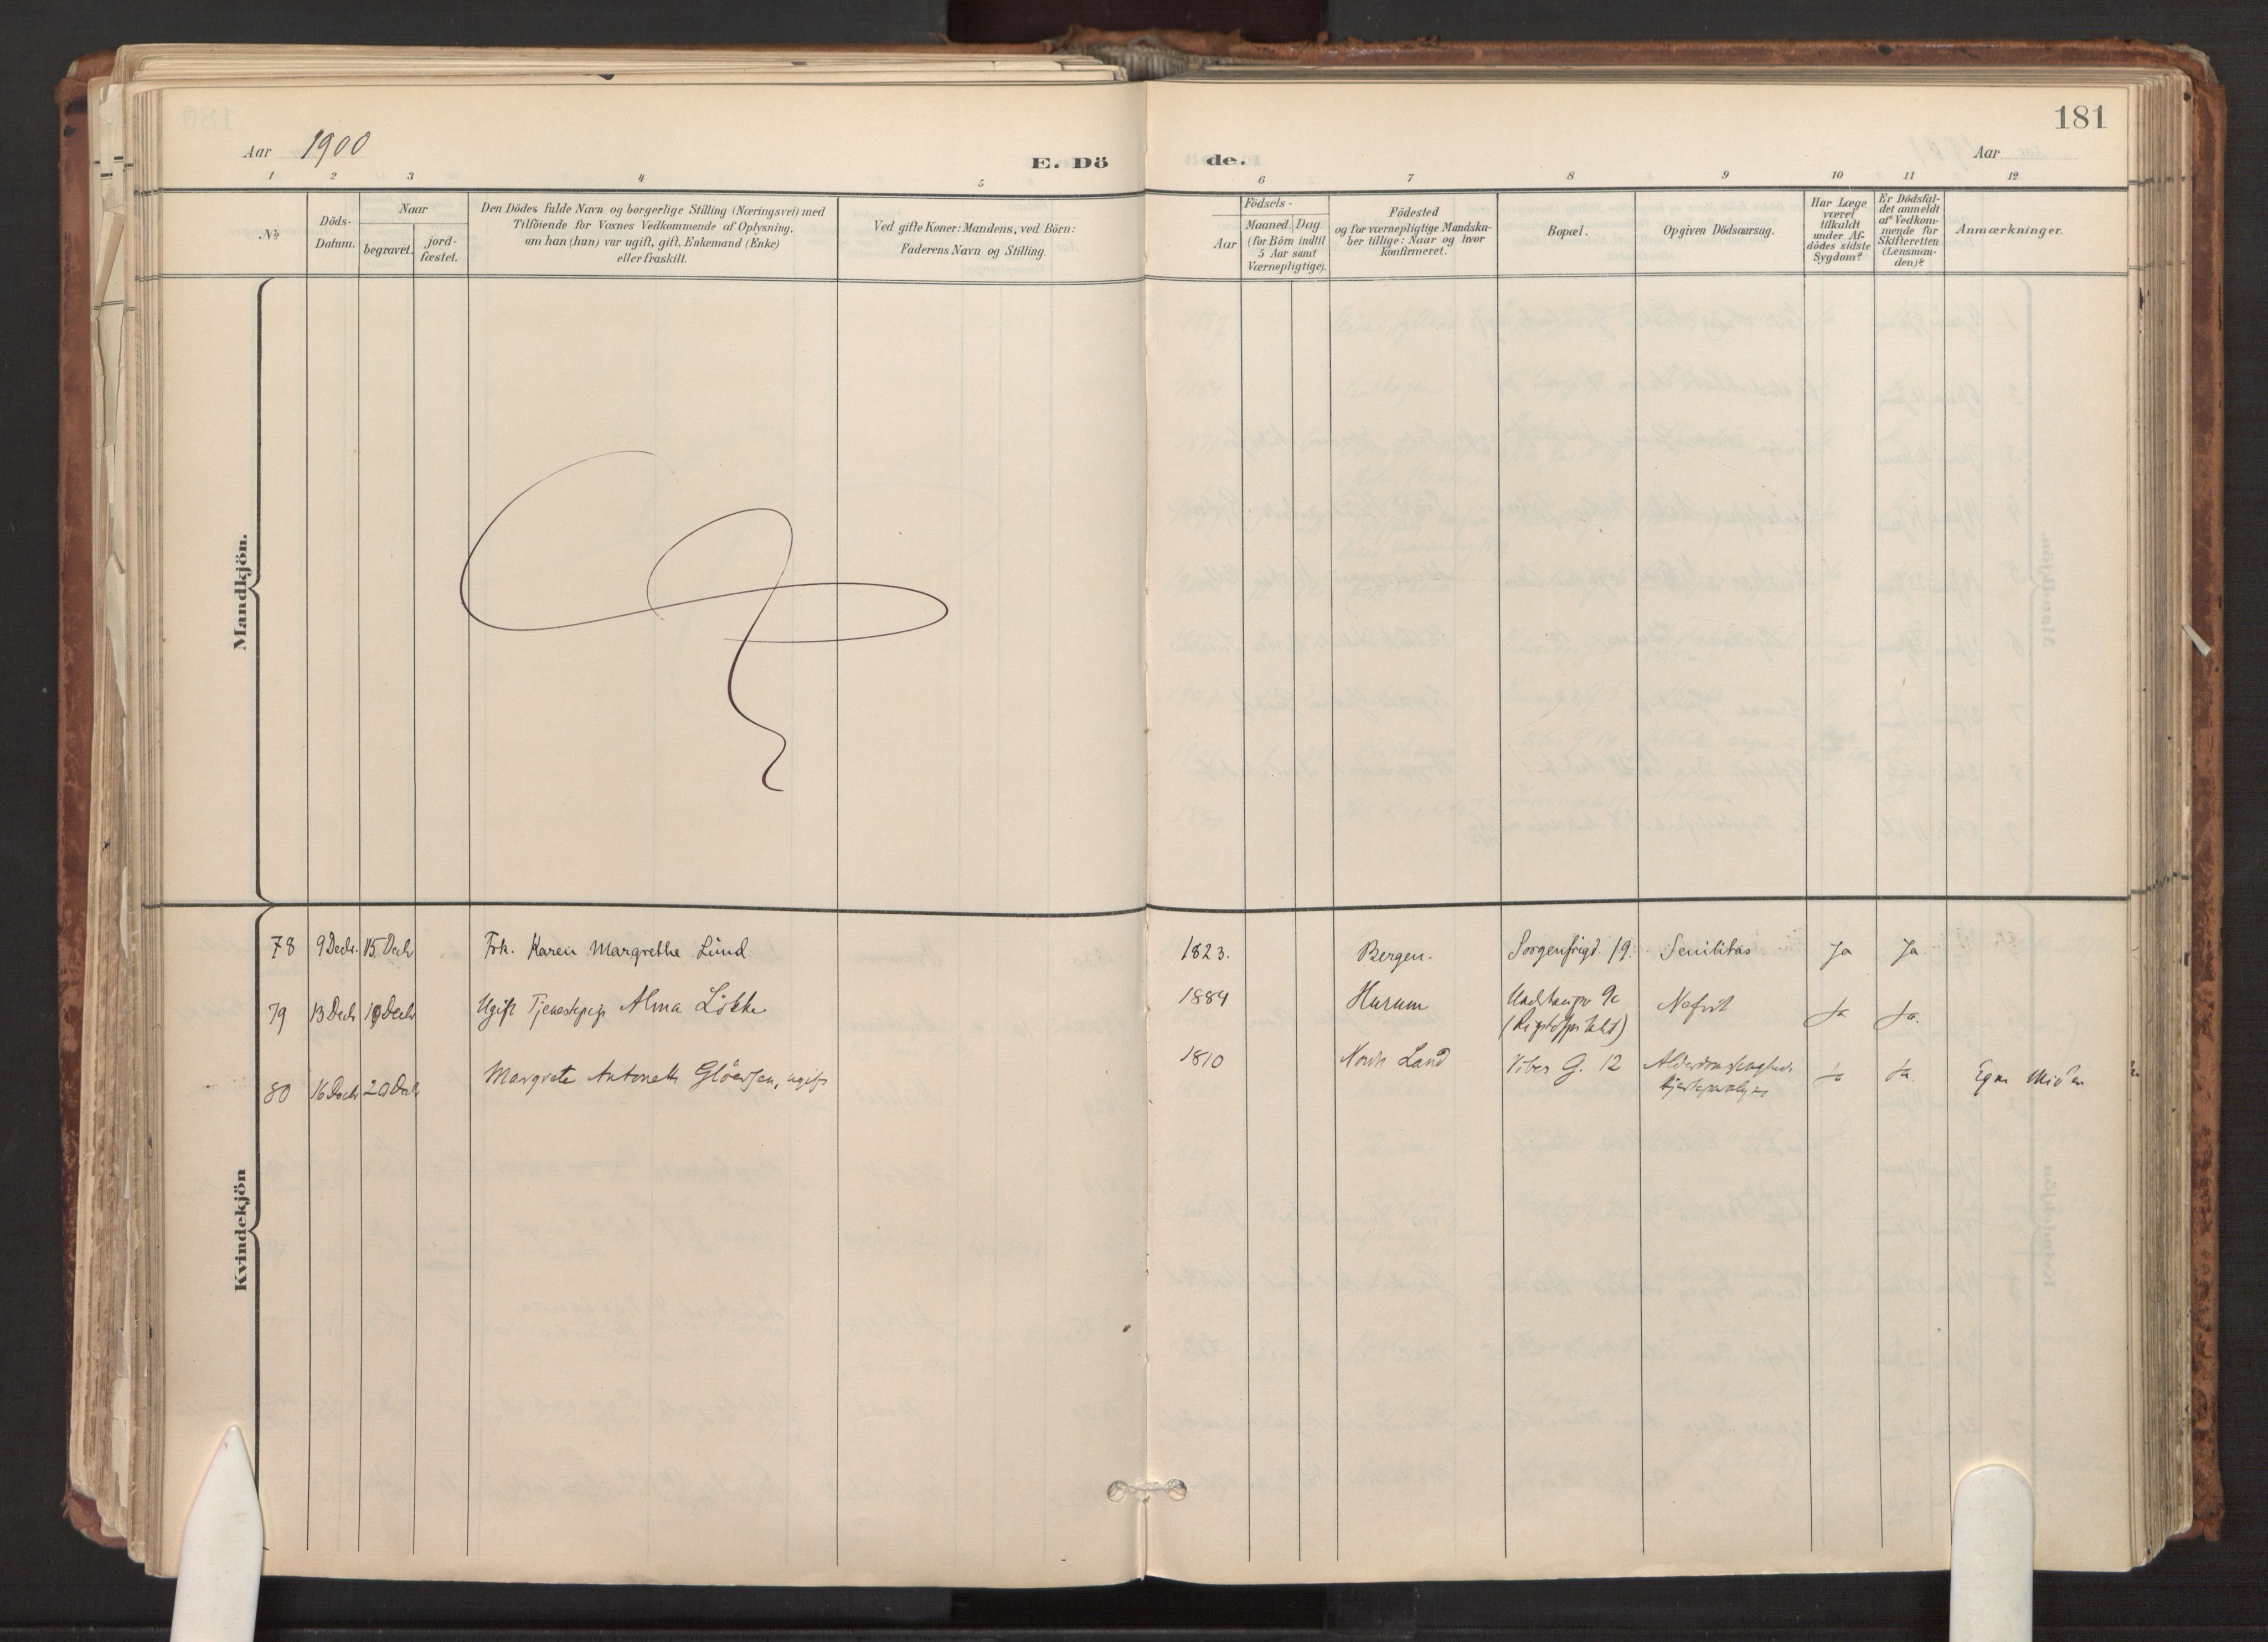 181
Aar 1900
E. Dö
de.
Aar
1 2 3 4 5 6 7 8 9 10 11 12
No
Döds-
Datum.
Naar
begravet.
jord-
fæstet.
Den Dödes fulde Navn og borgerlige Stilling (Næringsvei) med
Tilföiende for Voxnes Vedkommende af Oplysning,
om han (hun) var ugift, gift, Enkemand (Enke)
eller fraskilt.
Ved gifte Koner: Mandens, ved Börn:
Faderens Navn og Stilling.
Födsels-
Aar
Maaned. Dag
(for Börn indtil
5 Aar samt
Værnepligtige).
Födested
og for værnepligtige Mandska-
ber tillige: Naar og hvor
konfirmeret.
Bopæl.
Opgiven Dödsaarsag.
Har Læge
været
tilkaldt
under Af-
dödes sidste
Sygdom?
Er Dödsfal-
det anmeldt
af Vedkom-
mende for
Skifteretten
(Lensman-
den)?
Anmærkninger.
Mandkjön.
Kvindekjön
78 9 Decbr. 15 Decbr Frk. Karen Margrethe Lund 1823. Bergen. Sorgenfrigd. 19. Senilitas Ja Ja
79 13 Decbr 19 Decbr Ugift Tjenestepige Alma Løkke 1884 Hurum 9c Nefrit Ja Ja.
(Rigshospitalet)
80 16 Decbr 20 Decbr Margrete Antonette Glöersen, ugift 1810 Nordr Land Vibes G. 12 Alderdomssvaghed. Ja Ja